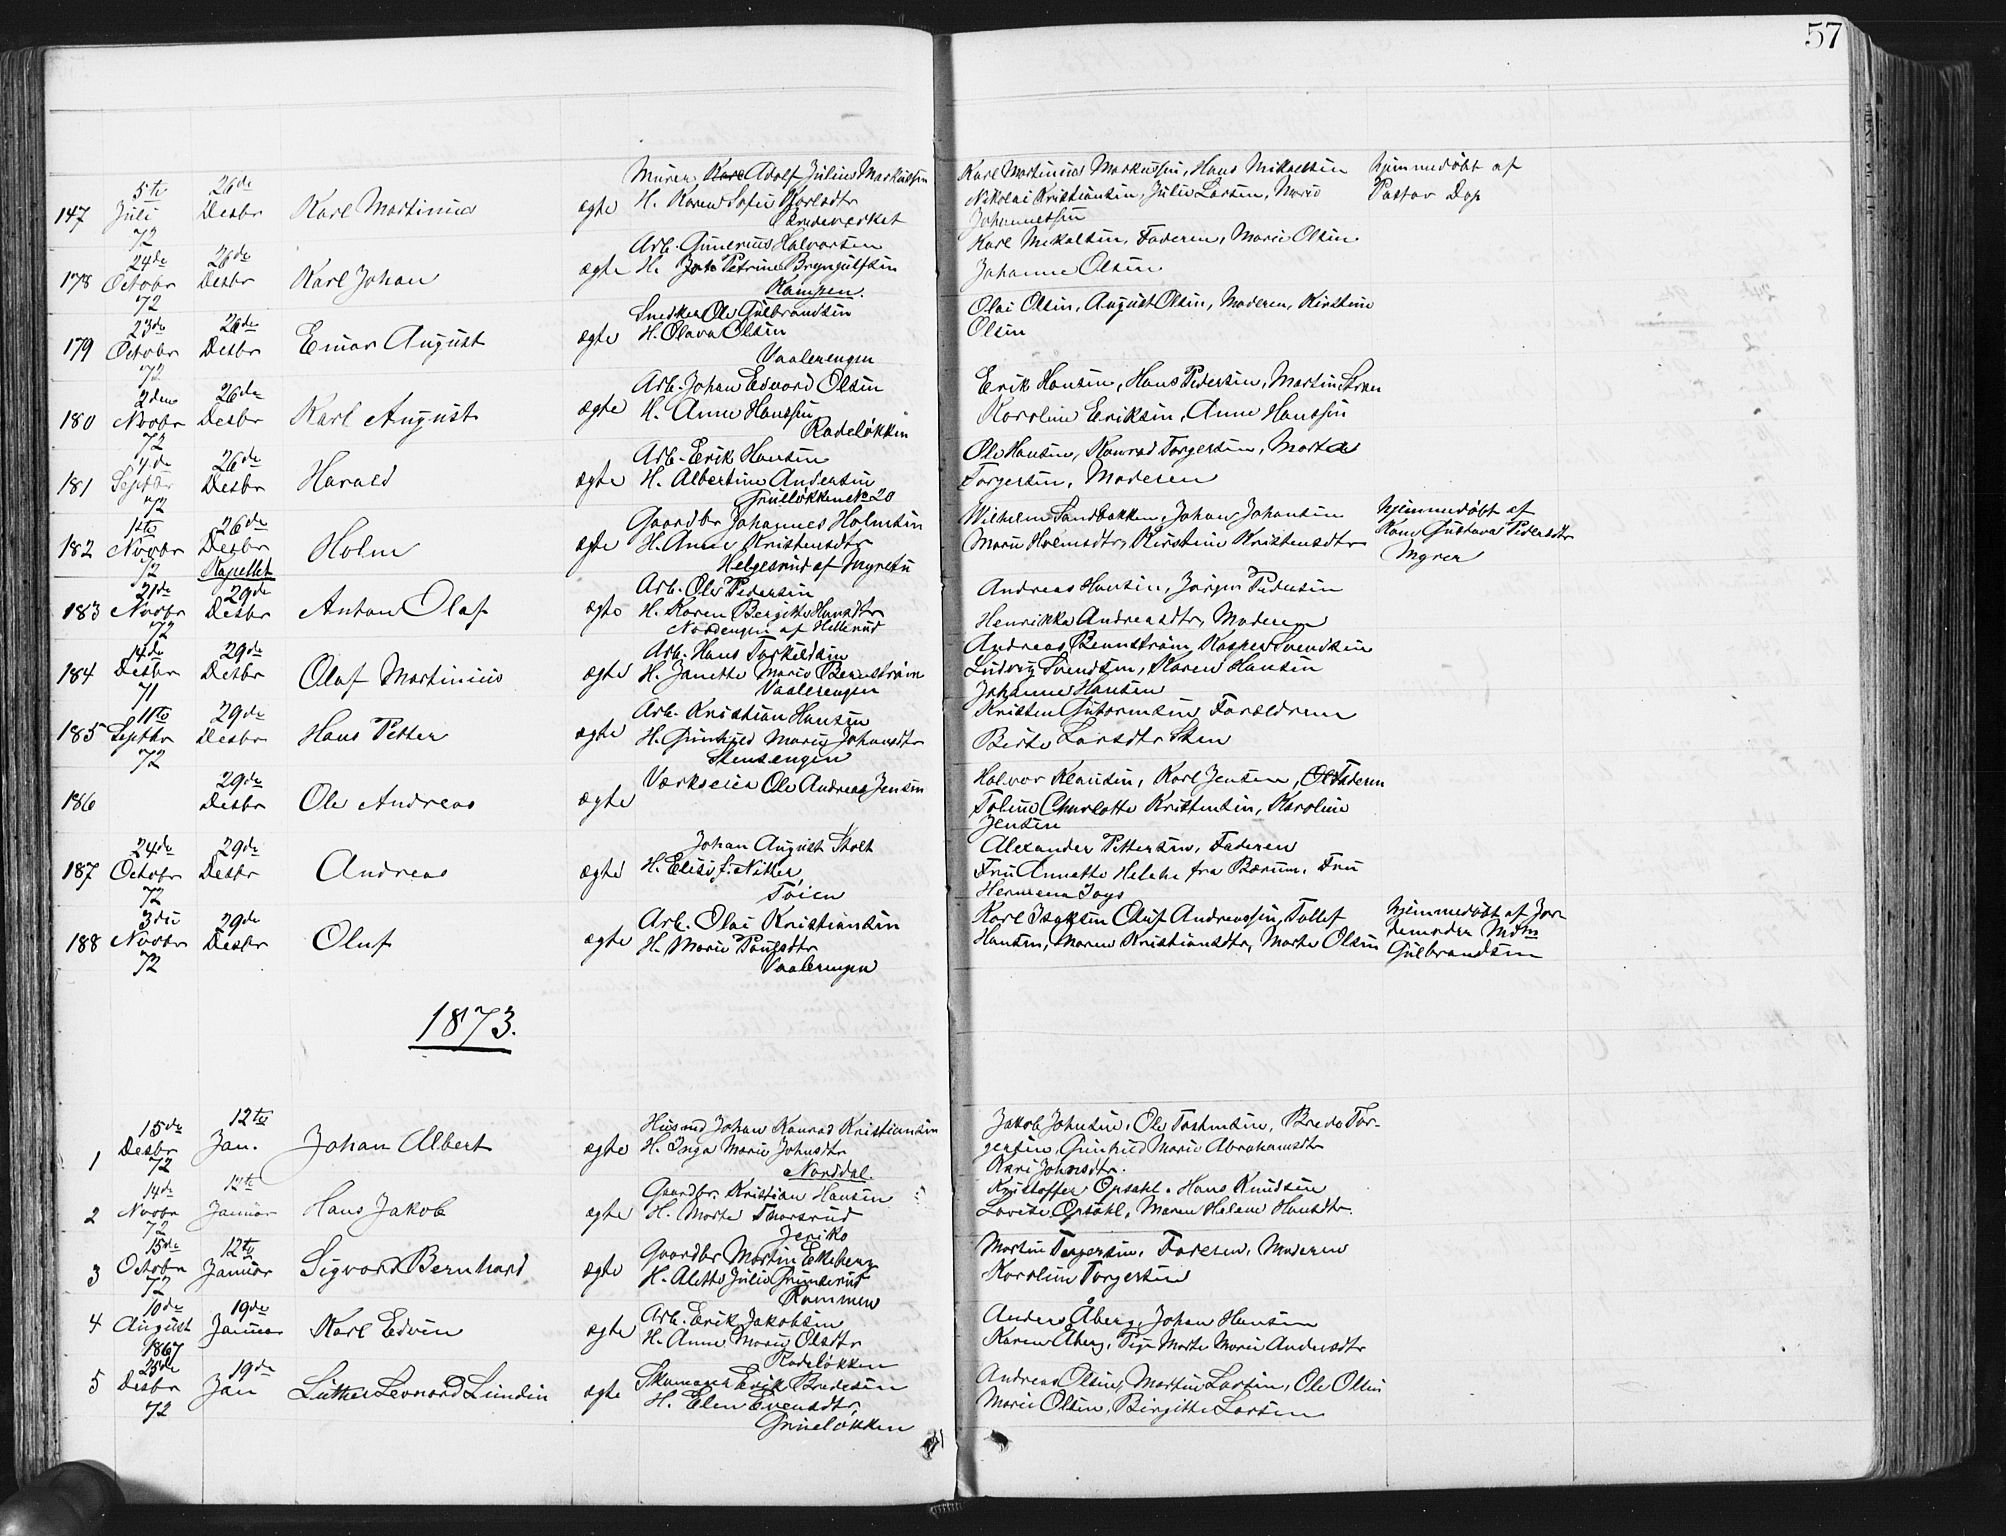 57
147 5te Juli 72 26de Desbr Karl Martinius ægte Murer Karl Adolf Julius Markussen
H. Karen Sofie Karlsdtr
Karl Martinius Markussen, Hans Mikaelsen
Nikolai Kristiansen, Julie Larsen, Marie
Johannessen
Hjemmedøbt af
Pastor Dop
178 24de Octobr 72 26de Desbr Karl Johan ægte Arb. Gunerius Halvorsen
H. Petrine Bryngulfsen
Kampen.
Karl Mikalsen, Faderen, Marie Olsen.
Johanne Olsen
179 23de Octobr 72 26de Desbr Einar August ægte Snedker Ole Gulbrandsen
H. Olava Olsen
Vaalerengen
Olai Olsen, August Olsen, Moderen, Kirstine
Olsen
180 2den Novbr 72 26de Desbr Karl August ægte Arb. Johan Edvard Olsen
H. Anne Hanssen
Rodeløkken
Erik Hansen, Hans Pedersen, Martin
Karoline Eriksen, Anne Hanssen
181 4de Septbr 72 26de Desbr Harald ægte Arb. Erik Hansen
H. Albertine Andersen
Grüsløkken No 20
Ole Hansen, Konrad Torgersen, Marta
Torgersen, Moderen
182 1ste Novbr 72 26de Desbr Kapellet Holm ægte Gaardbr Johannes Holmsen
H. Anne Kristensdtr
Helgesrud af Myrets
Wilhelm Sandbakken, Johan Johansen
Marie Holmsdtr, Kirstine Kristensdtr
Hjemmedøbt af
Kone Gustava Pedersdtr
Myrer
183 21de Novbr 72 29de Desbr Anton Olaf ægte Arb. Ole Pedersen
H. Karen Bergitte Hansdtr
Nordengen af Hellerud
Andreas Hansen, Jørgen Pedersen
Henrikke Andreasdtr, Moderen
184 14de Desbr 71 29de Desbr Olaf Martinius ægte Arb. Hans Torkildsen
H. Janette Marie Bennstrøm
Vaalerengen
Andreas Bennstrøm, Kasper Svendsen
Ludvig Svendsen, Karen Hansen
Johanne Hansen
185 11te Septbr 72 29de Desbr Hans Petter ægte Arb. Kristian Hansen
H. Gunhild Marie Johansdtr
Stensengen
Kristen Gutormsen Forældrene
Berte Larsdtr Sten
186 29de Desbr Ole Andreas ægte Værkseier Ole Andreas Jensen
Halvor Klausen, Karl Jensen, Faderen
Toline Charlotte Kristensen, Karoline
Jensen
187 24de Octobr 72 29de Desbr Andreas ægte Johan August Stolt
H. Elise f. Nitter
Tøien
Alexander Pettersen, Faderen
Fru Annette Helche fra Bærum, Fru
Hermana Joys
188 3die Novbr 72 29de Desbr Oluf ægte Arb. Olai Kristiansen
H. Marie Paulsdtr
Vaalerengen
Karl Isaksen Oluf Andreassen, Tollef
Hansen, Maren Kristiansdtr, Marte Olsen
Hjemmedøbt af Jor-
demoder Mdm
Gulbrandsen
1873.
1 15de Desbr 72 12te Jan. Johan Albert ægte Husmd Johan Konrad Kristiansen
H. Inga Marie Johnsdtr
Norddal.
Jakob Johnsen, Ole Torstensen, Brede Tor-
gersen, Gunhild Marie Abrahamsdtr
Kari Johnsdtr.
2 14de Novbr 72 12te Januar Hans Jakob ægte Gaardbr. Kristian Hansen
H. Marte Thorsrud
Jeriko
Kristoffer Opsahl, Hans Knudsen
Lovise Opsahl, Maren Helene Hansdtr.
3 15de Octobr 72 12te Januar Sigvard Bernhard ægte Gaardbr Martin Ekeberg
H. Alette Julie Grünerud
Rommen
Martin Torgersen, Faderen, Moderen
Karoline Torgersen
4 10de August 1867 19de Januar Karl Edvin ægte Arb. Erik Jakobsen
H. Anne Marie Olsdtr
Rodeløkken
Anders Åberg, Johan Hansen
Karen Åberg, Pige Marte Marie Andersdtr
5 25de Desbr 72 19de Jan Luther Leonard Lundin ægte Skomager Erik Bredesen
H. Elen Evensdtr
Grüneløkken
Andreas Olsen, Martin Larsen, Ole Olsen
Marie Olsen, Birgitte Larsen